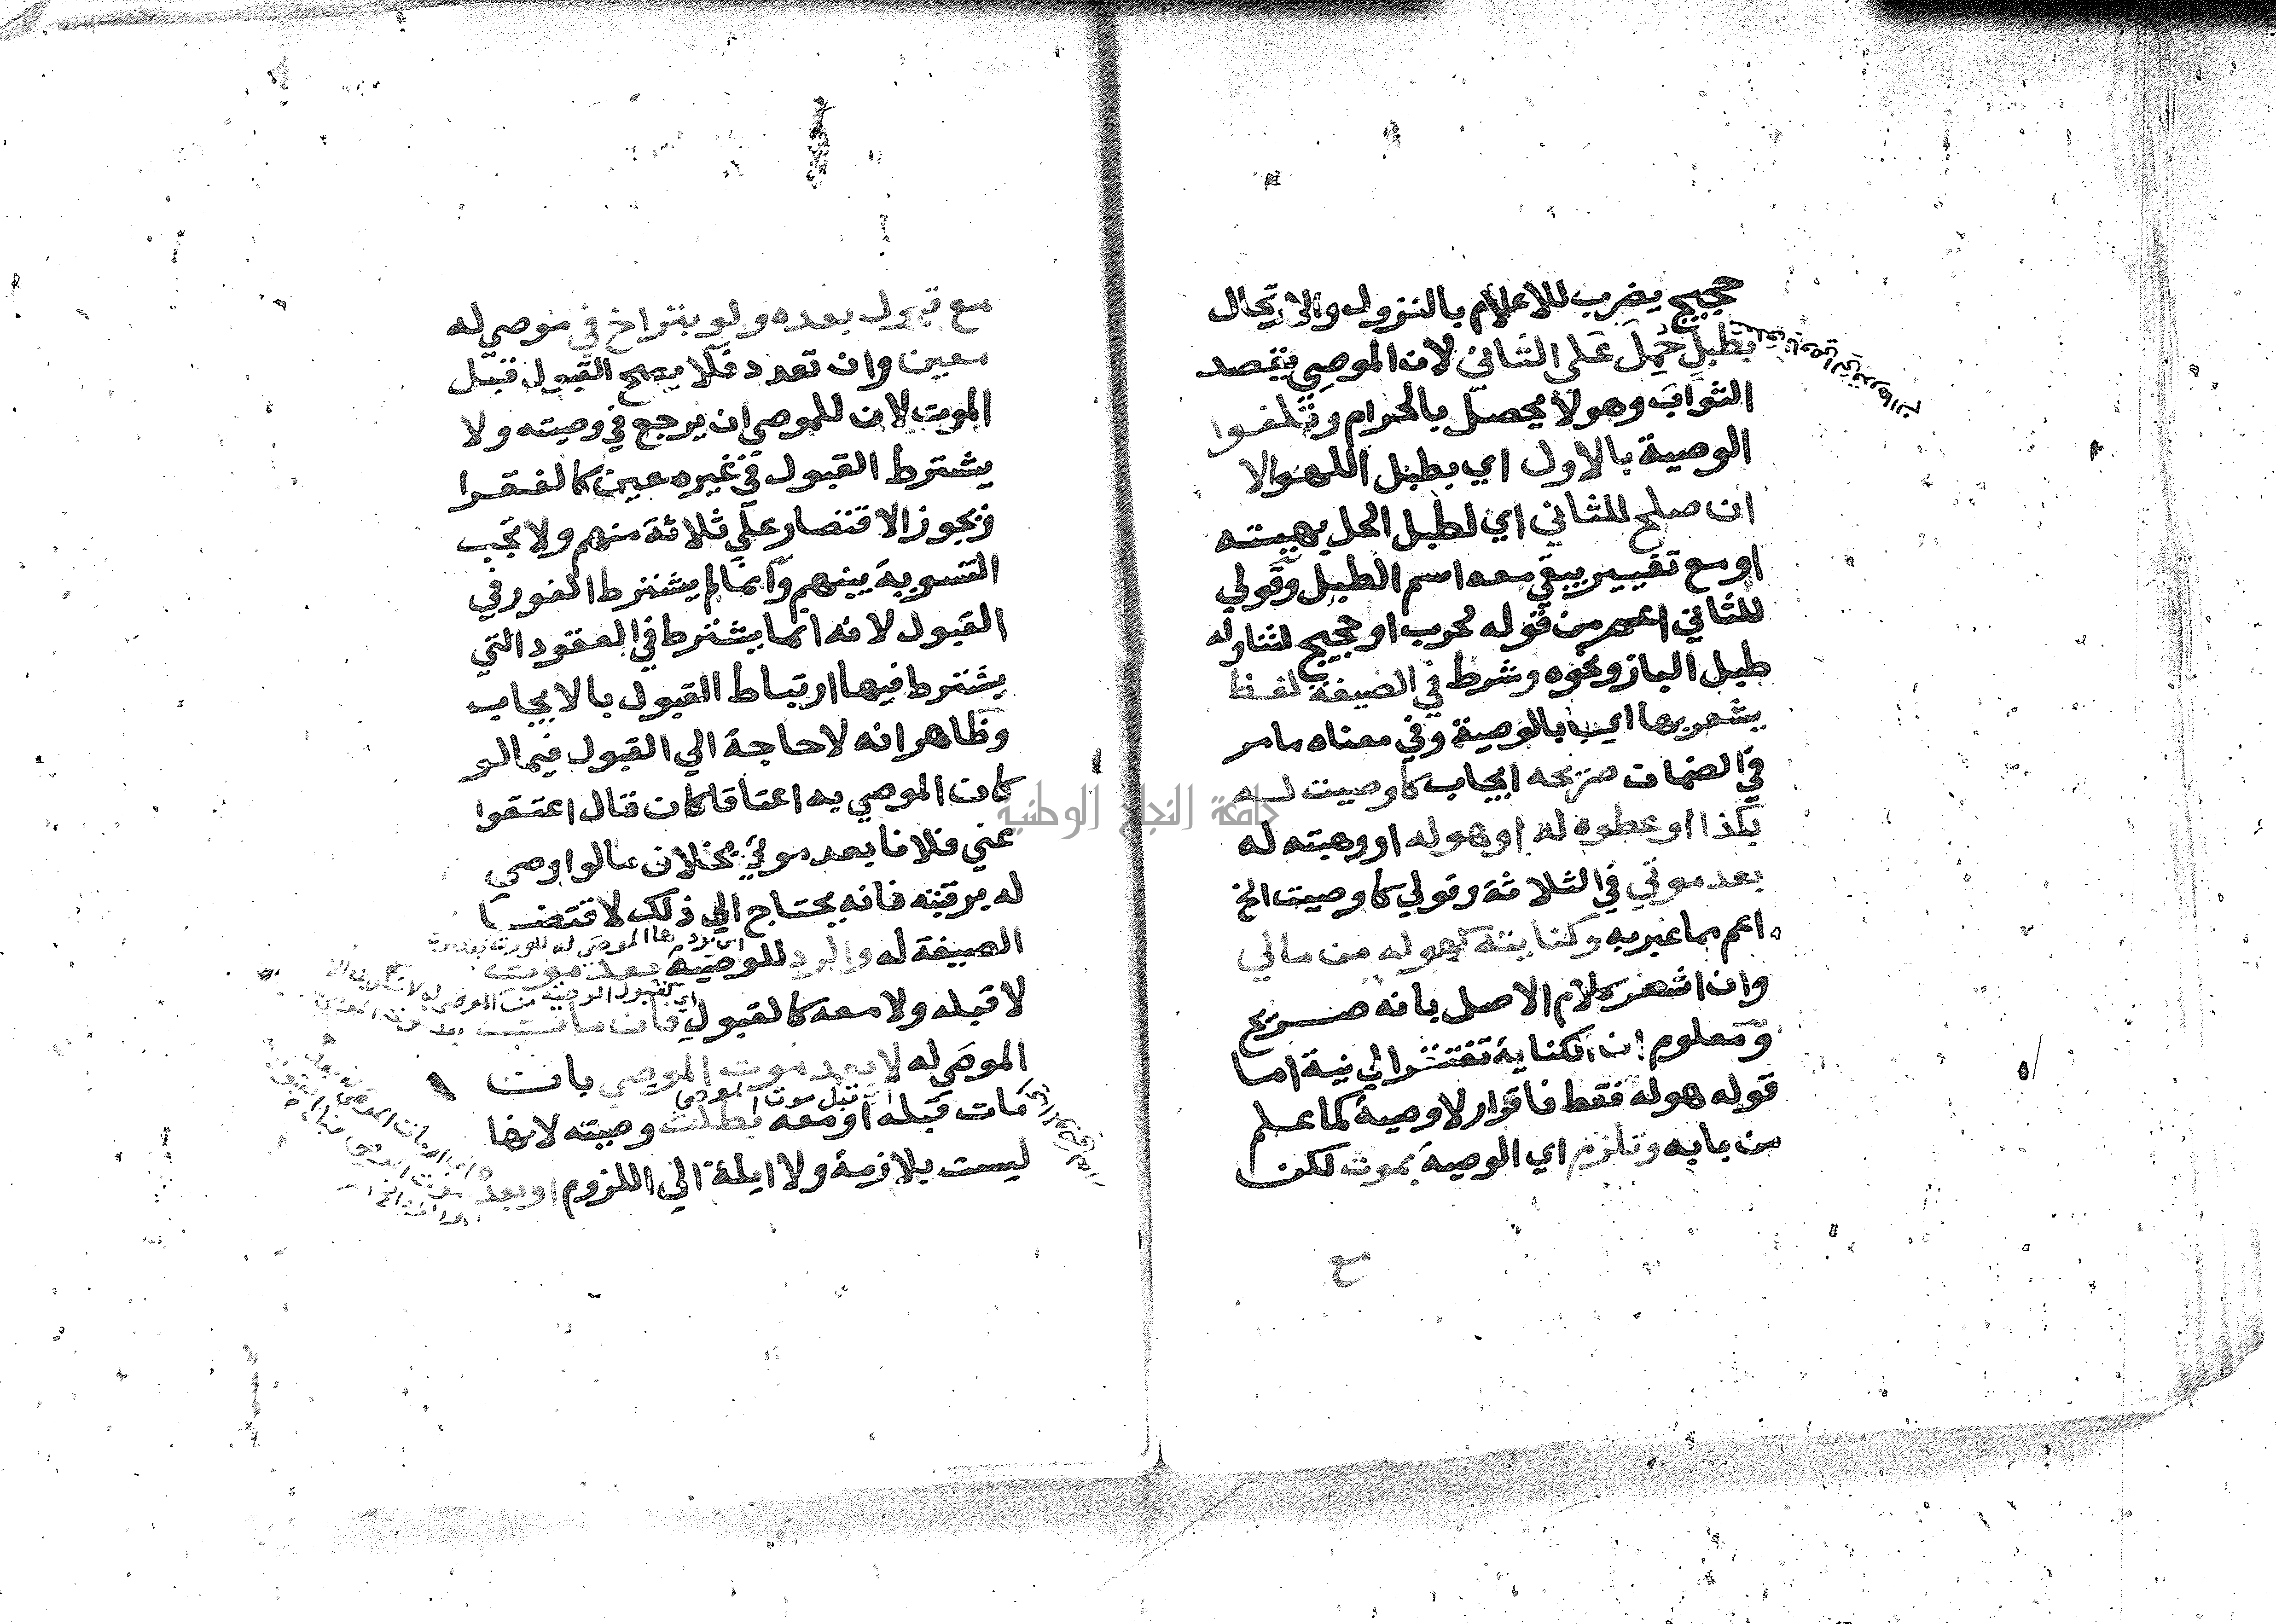 حجيج يضرب للاعلام بالنزول والارتحال
بطبل حُمِلَ عَلى الثاني لان الموصِي يقصد
الثوابَ وهو لا يحصل بالحرام وتلغوا
الوصية بالاول اي بطبل اللهو الا
ان صلح للثاني اي لطبل الحل بهيئته
او مع تغيير يبقي معه اسم الطبل وقولي
للثاني اعم من قوله لحرب او حجيج لتناوله
طبل الباز ونحوه وشرط في الصيغة لفظ
يشعر بها اي بالوصية وفي معناه ما مر
في الضمان صريحه ايجاب كاوصيت له
بكذا او عطوه له او هو له او وهبته له
بعد موتي في الثلاثة وقولي كاوصيت الخ
اعم مما عبر به وكنايته كهو له من مالي
وان اشعر كلام الاصل بانه صريح
ومعلوم ان الكناية تفتقر الي نية اما
قوله هو له فقط فاقرار لا وصية كما علم
من بابه وتلزم اي الوصية بموت لكن
مع
مع قبول بعده ولو بتراخ في موصي له
معين وان تعدد فلا يصح القبول قبل
الموت لان للموصي ان يرجع في وصيته ولا
يشترط القبول في غير معين كالفقرا
ويجوز الاقتصار علي ثلاثة منهم ولا تجب
التسوية بينهم وانما لم يشترط الفور في
القبول لانه انما يشترط في العقود التي
يشترط فيها ارتباط القبول بالايجاب
وظاهر انه لا حاجة الي القبول فيما لو
كان الموصي به اعتاقا كان قال اعتقوا
عني فلانا بعد موتي بخلاف ما لو اوصي
له برقبته فانه يحتاج الي ذلك لاقتضا
الصيغة له والرد للوصية بعد موت
لا قبله ولا معه كالقبول فان مات
الموصَي له لا بعد موت الموصي بان
قبل موت الموصي
مات قبله او معه بطلت وصيته لانها
ليست بلازمة ولا ايلة الي اللزوم او بعده
جامعة النجاح الوطنية